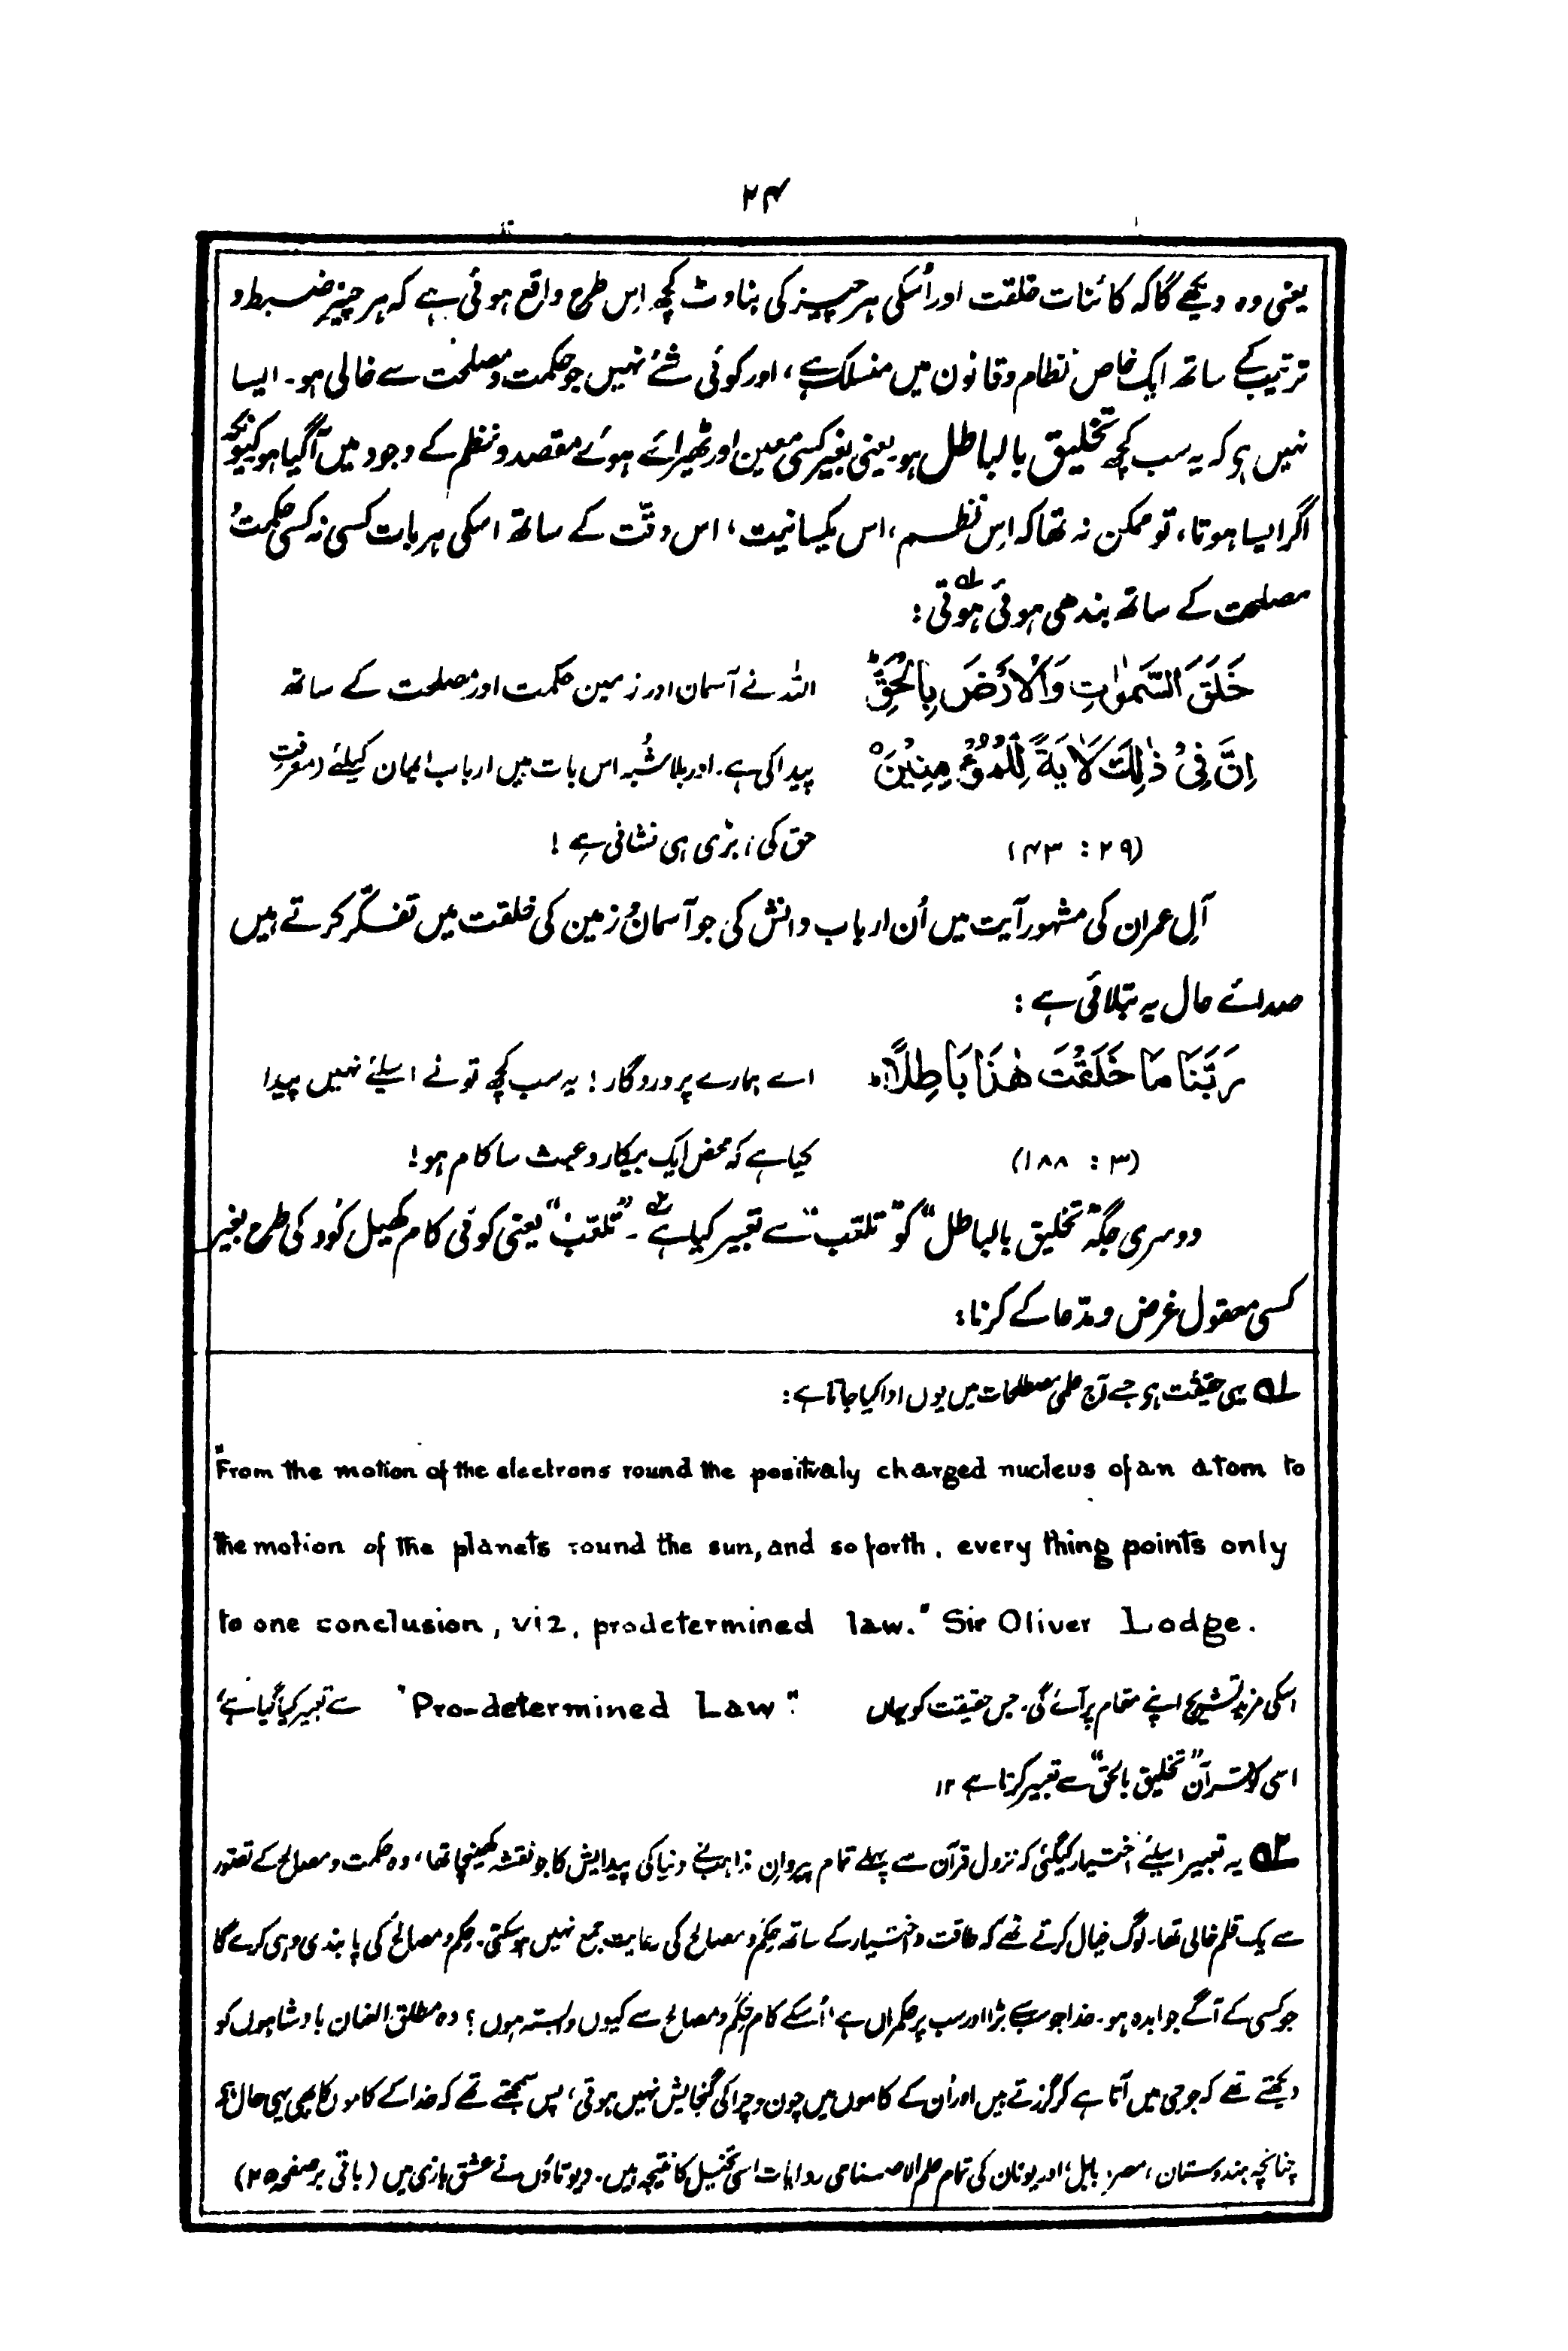 ۲۴
یعنی وہ دیکھے گا کہ کائنات خلقت اور اُسکی ہر چیز کی بناوٹ کچھ اِس طرح واقع ہوئی ہے کہ ہر چیز ضبط و
ترتیب کے ساتھ ایک خاص نظام و قانون میں منسلک ہے، اور کوئی شئے نہیں جو حکمت و مصلحت سے خالی ہو۔ ایسا
نہیں ہو کہ یہ سب کچھ تخلیق بالباطل ہو یعنی بغیر کسی معین اور ٹھیرائے ہوئے مقصد و نظم کے وجود میں آگیا ہو کیونکہ
اگر ایسا ہوتا، تو ممکن نہ تھا کہ اِس نظم، اس یکسانیت، اس دقّت کے ساتھ اسکی ہر بات کسی نہ کسی حکمت و
مصلحت کے ساتھ بندھی ہوئی ہوتی؎۱:
خَلَقَ السَّمٰوٰتِ وَالْاَرْضَ بِالْحَقِّ ؕ اللہ نے آسمان اور زمین حکمت اور مصلحت کے ساتھ
اِنَّ فِیْ ذٰلِكَ لَاٰیَةً لِّلْمُؤْمِنِیْنَ پیدا کی ہے۔ اور بلا شُبہ اس بات میں ارباب ایمان کیلئے (معرفتِ
(۲۹ : ۴۳) حق کی) بڑی ہی نشانی ہے!
آلِ عمران کی مشہور آیت میں اُن ارباب دانش کی جو آسمان و زمین کی خلقت میں تفکّر کرتے ہیں
صدائے حال یہ بتلائی ہے:
رَبَّنَا مَا خَلَقْتَ هٰذَا بَاطِلًا ۚ اے ہمارے پروردگار! یہ سب کچھ تو نے اسلئے نہیں پیدا
(۳ : ۱۸۸) کیا ہے کہ محض ایک بیکار و عبث سا کام ہو!
دوسری جگہ "تخلیق بالباطل" کو "تلعّب" سے تعبیر کیا ہے؎۲۔ "تلعّب" یعنی کوئی کام کھیل کُود کی طرح بغیر
کسی معقول غرض و مدّعا کے کرنا:
؎۱ یہی حقیقت ہو جسے آج علمی مصطلحات میں یوں ادا کیا جاتا ہے:
"From the motion of the electrons round the positivaly charged nucleus of an atom to
the motion of the planets round the sun, and so forth, every thing points only
to one conclusion, viz, prodetermined law." Sir Oliver Lodge.
اسکی مزید تشریح اپنے مقام پر آئے گی۔ جس حقیقت کو یہاں "Pro-determined Law" سے تعبیر کیا گیا ہے،
اسی کو قرآن "تخلیق بالحق" سے تعبیر کرتا ہے ۱۲
؎۲ یہ تعبیر اسلئے اختیار کیگئی کہ نزول قرآن سے پہلے تمام پیروانِ مذاہب نے دنیا کی پیدایش کا جو نقشہ کھینچا تھا، وہ حکمت و مصالح کے تصور
سے یک قلم خالی تھا۔ لوگ خیال کرتے تھے کہ طاقت و اختیار کے ساتھ حِکَم و مصالح کی رعایت جمع نہیں ہوسکتی۔ حِکَم و مصالح کی پابندی وہی کرے گا
جو کسی کے آگے جوابدہ ہو۔ خدا جو سب سے بڑا اور سب پر حکمراں ہے، اُسکے کام حِکَم و مصالح سے کیوں وابستہ ہوں؟ وہ مطلق العنان بادشاہوں کو
دیکھتے تھے کہ جو جی میں آتا ہے کر گزرتے ہیں اور اُن کے کاموں میں چون و چرا کی گنجایش نہیں ہوتی، پس سمجھتے تھے کہ خدا کے کاموں کا بھی یہی حال ہے
چنانچہ ہندوستان، مصر، بابل، اور یونان کی تمام علم الاصنامی روایات اسی تخیل کا نتیجہ ہیں۔ دیوتاؤں نے عشق بازی میں (باقی بر صفحہ ۲۵)